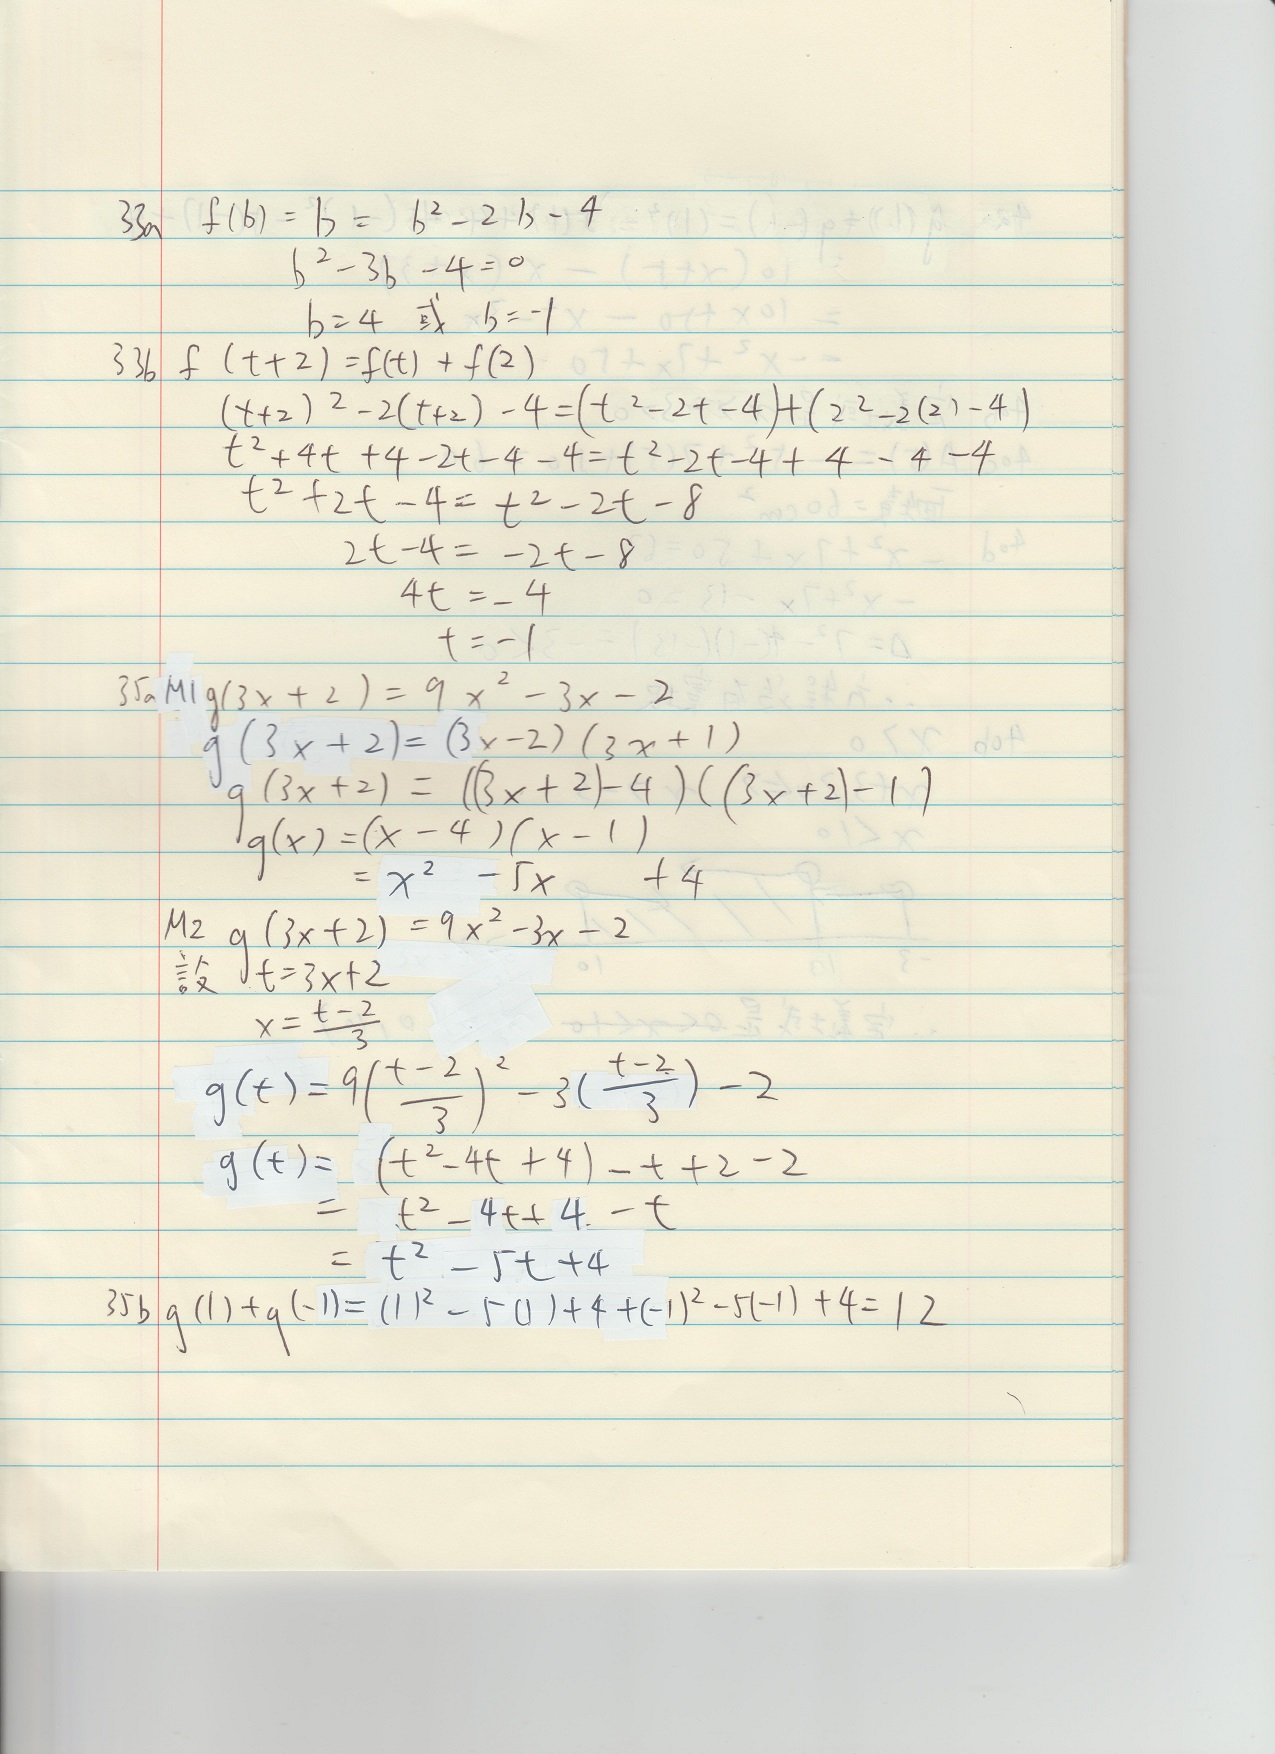 33a f(b) = b = b² - 2b - 4
b² - 3b - 4 = 0
b = 4 或 b = -1
33b f (t+2) = f(t) + f(2)
(t+2)² - 2(t+2) - 4 = (t² - 2t - 4) + (2² - 2(2) - 4)
t² + 4t + 4 - 2t - 4 - 4 = t² - 2t - 4 + 4 - 4 - 4
t² + 2t - 4 = t² - 2t - 8
2t - 4 = -2t - 8
4t = -4
t = -1
35a M1 g(3x + 2) = 9x² - 3x - 2
g(3x + 2) = (3x - 2)(3x + 1)
g(3x + 2) = ((3x + 2) - 4)((3x + 2) - 1)
g(x) = (x - 4)(x - 1)
= x² - 5x + 4
M2 g(3x+2) = 9x² - 3x - 2
設 t = 3x+2
x = (t-2)/3
g(t) = 9((t-2)/3)² - 3((t-2)/3) - 2
g(t) = (t² - 4t + 4) - t + 2 - 2
= t² - 4t + 4 - t
= t² - 5t + 4
35b g(1) + g(-1) = (1)² - 5(1) + 4 + (-1)² - 5(-1) + 4 = 12